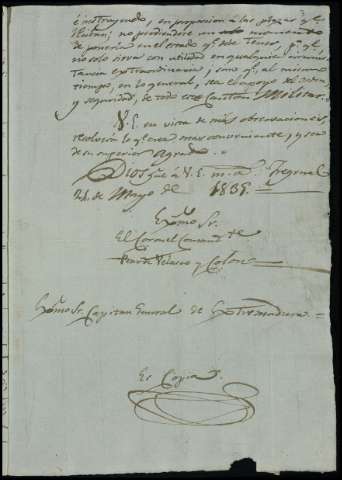 é instruyendo, en proporcion à las plazas q.e
resultan; no perdiendose un solo momento
de ponerla en el estado q.e debe tener, p.a q.e
no solo sirva con utilidad en qualquier
tancia extraordinaria, sino q.e al mismo
tiempo, en lo general, sea el apoyo de
y seguridad, de todo este Canton
V. E. en vista de mis observaciones,
resolverá lo q.e crea mas conveniente, y sea
de su superior agrado.
Dios gue à V. E. m.s a.s Fregenal
24 de Mayo de 1835.
Exc̃mo Sr.
El Coronel Comand.te
Velasco y Colon
Exc̃mo Sr. Capitan General de Extremadura.
Es Copia.